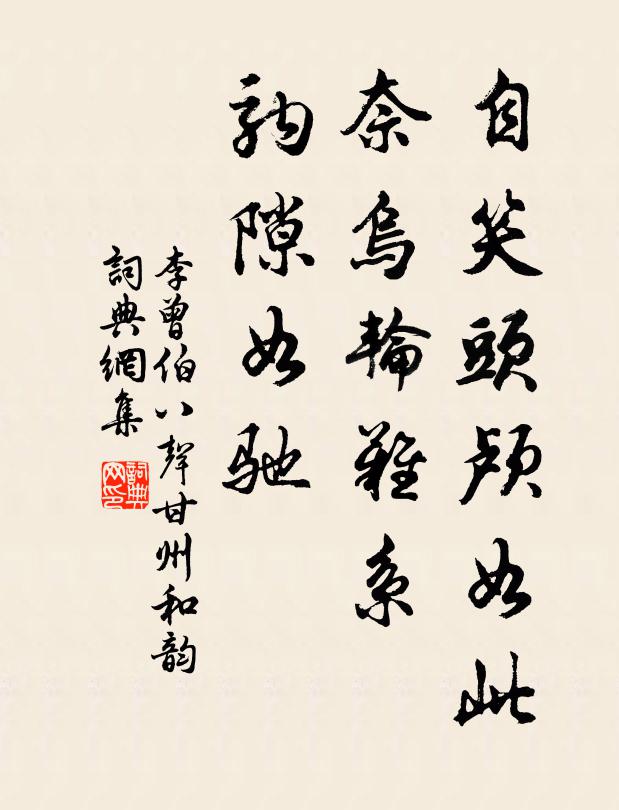 自笑頭顱如此
奈烏輪難系
駒隙如馳
李曾伯八聲甘州和韵
詞典網集
詞典网印